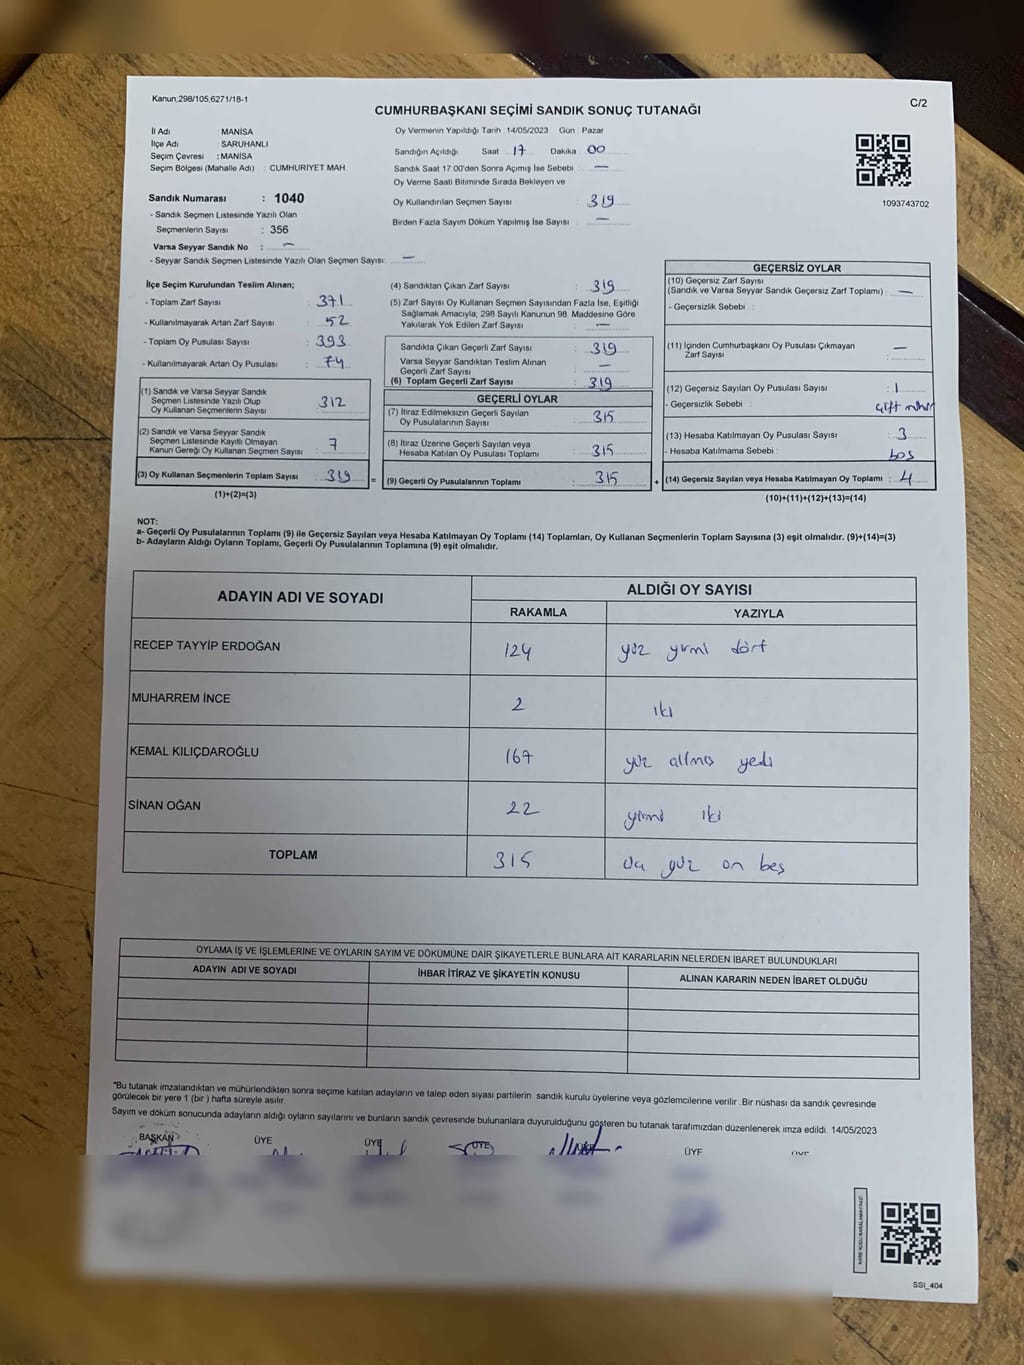 Kanun;298/105,6271/18-1
C/2
CUMHURBAŞKANI SEÇİMİ SANDIK SONUÇ TUTANAĞI
İl Adı : MANİSA
İlçe Adı : SARUHANLI
Seçim Çevresi : MANİSA
Seçim Bölgesi (Mahalle Adı) : CUMHURIYET MAH.
Sandık Numarası : 1040
- Sandık Seçmen Listesinde Yazılı Olan
Seçmenlerin Sayısı : 356
Varsa Seyyar Sandık No : —
- Seyyar Sandık Seçmen Listesinde Yazılı Olan Seçmen Sayısı: —
Oy Vermenin Yapıldığı Tarih : 14/05/2023 Gün : Pazar
Sandığın Açıldığı Saat 17 Dakika 00
Sandık Saat 17:00'den Sonra Açımış İse Sebebi : —
Oy Verme Saati Bitiminde Sırada Bekleyen ve
Oy Kullandırılan Seçmen Sayısı : 319
Birden Fazla Sayım Döküm Yapılmış İse Sayısı : —
1093743702
İlçe Seçim Kurulundan Teslim Alınan;
- Toplam Zarf Sayısı : 371
- Kullanılmayarak Artan Zarf Sayısı : 52
- Toplam Oy Pusulası Sayısı : 393
- Kullanılmayarak Artan Oy Pusulası : 74
(1) Sandık ve Varsa Seyyar Sandık
Seçmen Listesinde Yazılı Olup
Oy Kullanan Seçmenlerin Sayısı : 312
(2) Sandık ve Varsa Seyyar Sandık
Seçmen Listesinde Kayıtlı Olmayan
Kanun Gereği Oy Kullanan Seçmen Sayısı : 7
(3) Oy Kullanan Seçmenlerin Toplam Sayısı : 319 =
(1)+(2)=(3)
(4) Sandıktan Çıkan Zarf Sayısı : 319
(5) Zarf Sayısı Oy Kullanan Seçmen Sayısından Fazla İse, Eşitliği
Sağlamak Amacıyla; 298 Sayılı Kanunun 98. Maddesine Göre
Yakılarak Yok Edilen Zarf Sayısı : —
Sandıkta Çıkan Geçerli Zarf Sayısı : 319
Varsa Seyyar Sandıktan Teslim Alınan
Geçerli Zarf Sayısı : —
(6) Toplam Geçerli Zarf Sayısı : 319
GEÇERLİ OYLAR
(7) İtiraz Edilmeksizin Geçerli Sayılan
Oy Pusulalarının Sayısı : 315
(8) İtiraz Üzerine Geçerli Sayılan veya
Hesaba Katılan Oy Pusulası Toplamı : 315
(9) Geçerli Oy Pusulalarının Toplamı : 315 +
GEÇERSİZ OYLAR
(10) Geçersiz Zarf Sayısı
(Sandık ve Varsa Seyyar Sandık Geçersiz Zarf Toplamı) : —
- Geçersizlik Sebebi :
(11) İçinden Cumhurbaşkanı Oy Pusulası Çıkmayan
Zarf Sayısı : —
(12) Geçersiz Sayılan Oy Pusulası Sayısı : 1
- Geçersizlik Sebebi : çift mühür
(13) Hesaba Katılmayan Oy Pusulası Sayısı : 3
- Hesaba Katılmama Sebebi : boş
(14) Geçersiz Sayılan veya Hesaba Katılmayan Oy Toplamı : 4
(10)+(11)+(12)+(13)=(14)
NOT:
a- Geçerli Oy Pusulalarının Toplamı (9) ile Geçersiz Sayılan veya Hesaba Katılmayan Oy Toplamı (14) Toplamları, Oy Kullanan Seçmenlerin Toplam Sayısına (3) eşit olmalıdır. (9)+(14)=(3)
b- Adayların Aldığı Oyların Toplamı, Geçerli Oy Pusulalarının Toplamına (9) eşit olmalıdır.
ADAYIN ADI VE SOYADI ALDIĞI OY SAYISI
RAKAMLA YAZIYLA
RECEP TAYYİP ERDOĞAN 124 yüz yirmi dört
MUHARREM İNCE 2 iki
KEMAL KILIÇDAROĞLU 167 yüz altmış yedi
SİNAN OĞAN 22 yirmi iki
TOPLAM 315 üç yüz on beş
OYLAMA İŞ VE İŞLEMLERİNE VE OYLARIN SAYIM VE DÖKÜMÜNE DAİR ŞİKAYETLERLE BUNLARA AİT KARARLARIN NELERDEN İBARET BULUNDUKLARI
ADAYIN ADI VE SOYADI İHBAR İTİRAZ VE ŞİKAYETİN KONUSU ALINAN KARARIN NEDEN İBARET OLDUĞU
*Bu tutanak imzalandıktan ve mühürlendikten sonra seçime katılan adayların ve talep eden siyasi partilerin sandık kurulu üyelerine veya gözlemcilerine verilir .Bir nüshası da sandık çevresinde
görülecek bir yere 1 (bir ) hafta süreyle asılır.
Sayım ve döküm sonucunda adayların aldığı oyların sayılarını ve bunların sandık çevresinde bulunanlara duyurulduğunu gösteren bu tutanak tarafımızdan düzenlenerek imza edildi. 14/05/2023
BAŞKAN ÜYE ÜYE ÜYE ÜYE ÜYE ÜYE
KARE KODU KARALAMAYINIZ!
SSI_404